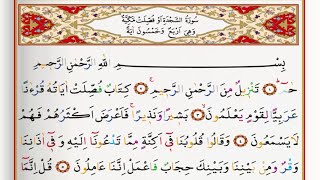 سُورَةُ السَّجْدَةِ اَوْ فُصِّلَتْ مَكِّيَّةٌ
وَهِيَ اَرْبَعٌ وَخَمْسُونَ اٰيَةً
بِسْمِ اللّٰهِ الرَّحْمٰنِ الرَّحِيمِ
حٰمٓ ۚ تَنْزِيلٌ مِنَ الرَّحْمٰنِ الرَّحِيمِۚ كِتَابٌ فُصِّلَتْ اٰيَاتُهُ قُرْءٰنًا
عَرَبِيًّا لِقَوْمٍ يَعْلَمُونَۙ بَشِيرًا وَنَذِيرًاۚ فَاَعْرَضَ اَكْثَرُهُمْ فَهُمْ
لَا يَسْمَعُونَ وَقَالُوا قُلُوبُنَا فِٓي اَكِنَّةٍ مِمَّا تَدْعُونَٓا اِلَيْهِ وَفِٓي اٰذَانِنَا
وَقْرٌ وَمِنْ بَيْنِنَا وَبَيْنِكَ حِجَابٌ فَاعْمَلْ اِنَّنَا عَامِلُونَ قُلْ اِنَّمَٓا